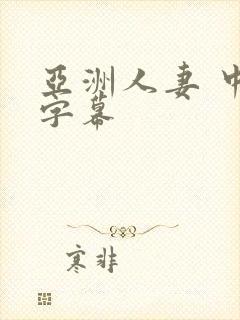 亞洲人妻 中
字幕
寒非